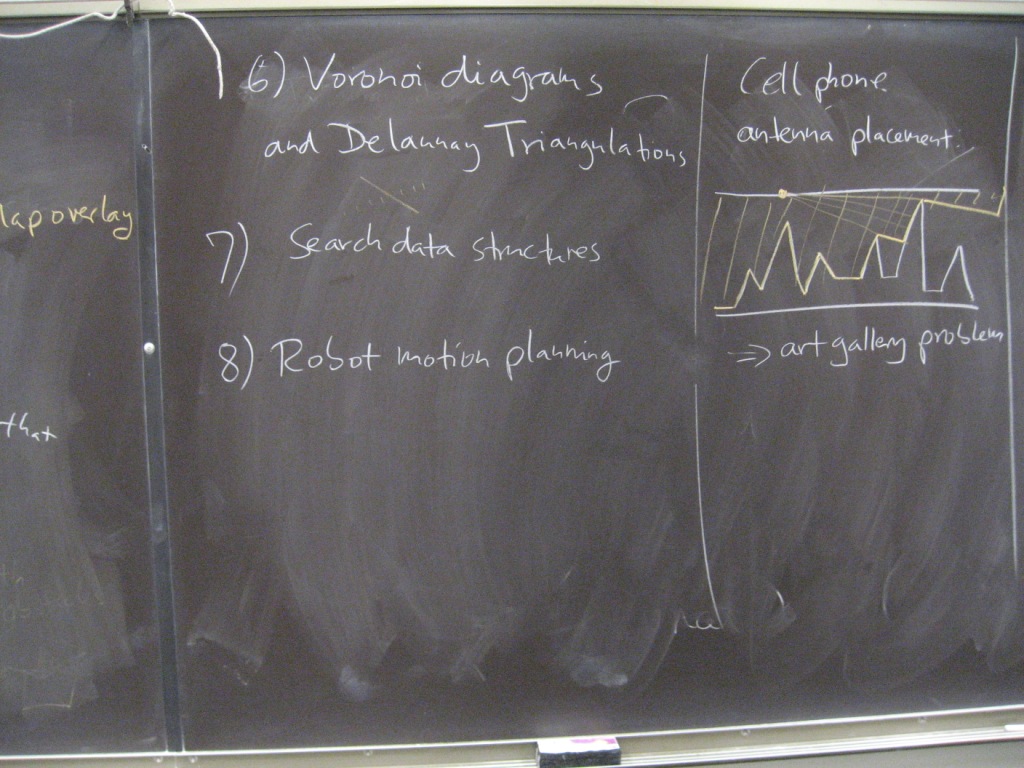 lap overlay
that
6) Voronoi diagrams
and Delaunay Triangulations
7) Search data structures
8) Robot motion planning
Cell phone
antenna placement:
⇒ art gallery problem